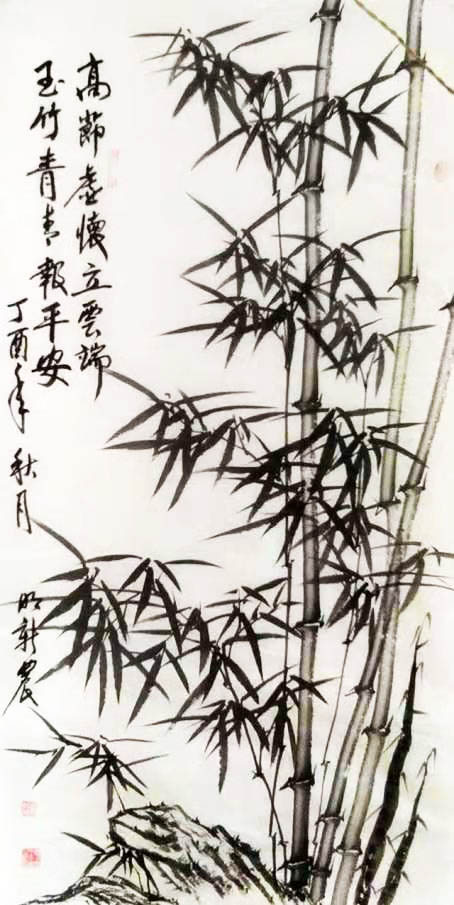 高節虛懷立雲端
玉竹青青報平安
丁酉年秋月
新農